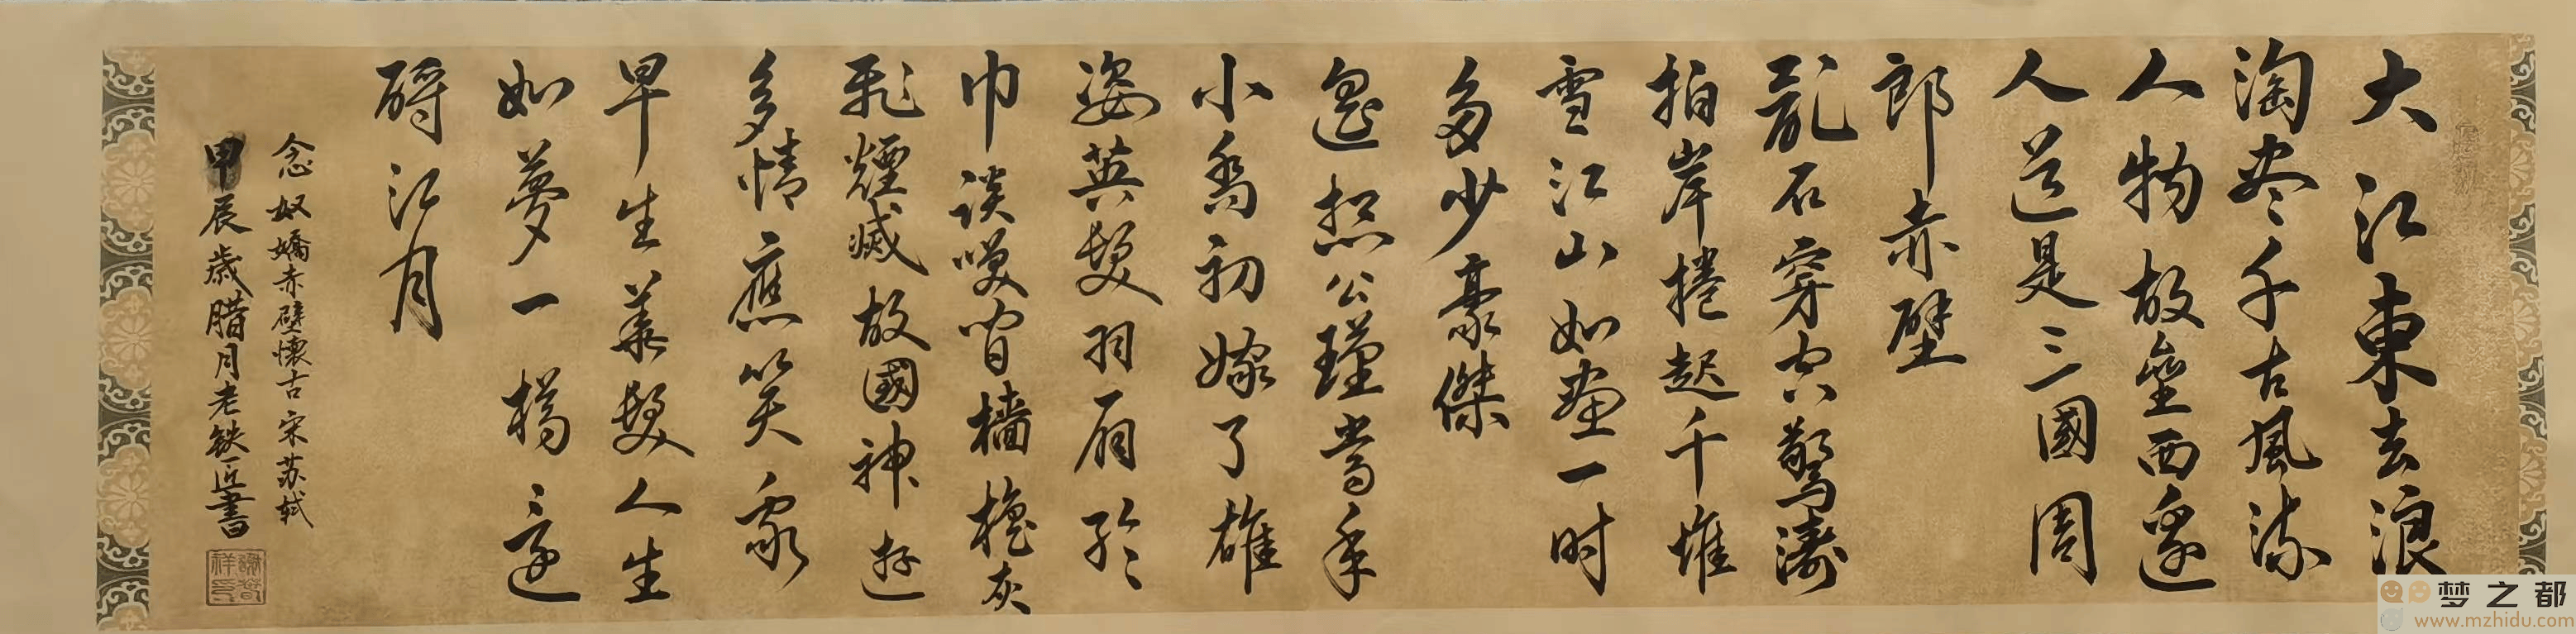 大江東去浪
淘尽千古風流
人物故壘西邊
人道是三國周
郎赤壁
亂石穿空驚濤
拍岸捲起千堆
雪江山如畫一时
多少豪傑
遙想公瑾當年
小喬初嫁了雄
姿英髮羽扇綸
巾談笑間檣櫓灰
飛煙滅故國神遊
多情應笑我
早生華髮人生
如夢一樽還
酹江月
念奴嬌赤壁懷古宋苏轼
甲辰歲腊月老鉄匠書
梦之都
www.mzhidu.com